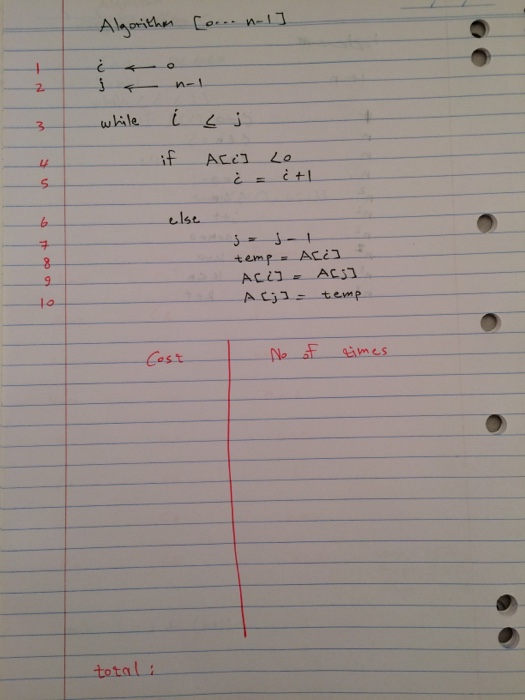 Algorithm [0... n-1]
1 i ← 0
2 j ← n-1
3 while i ≤ j
4 if A[i] <0
5 i = i+1
6 else
7 j = j-1
8 temp = A[i]
9 A[i] = A[j]
10 A[j] = temp
Cost No of times
total: